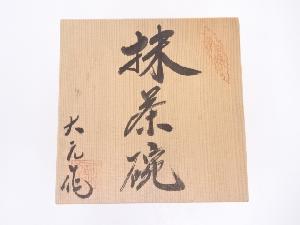 抹茶碗
大元作